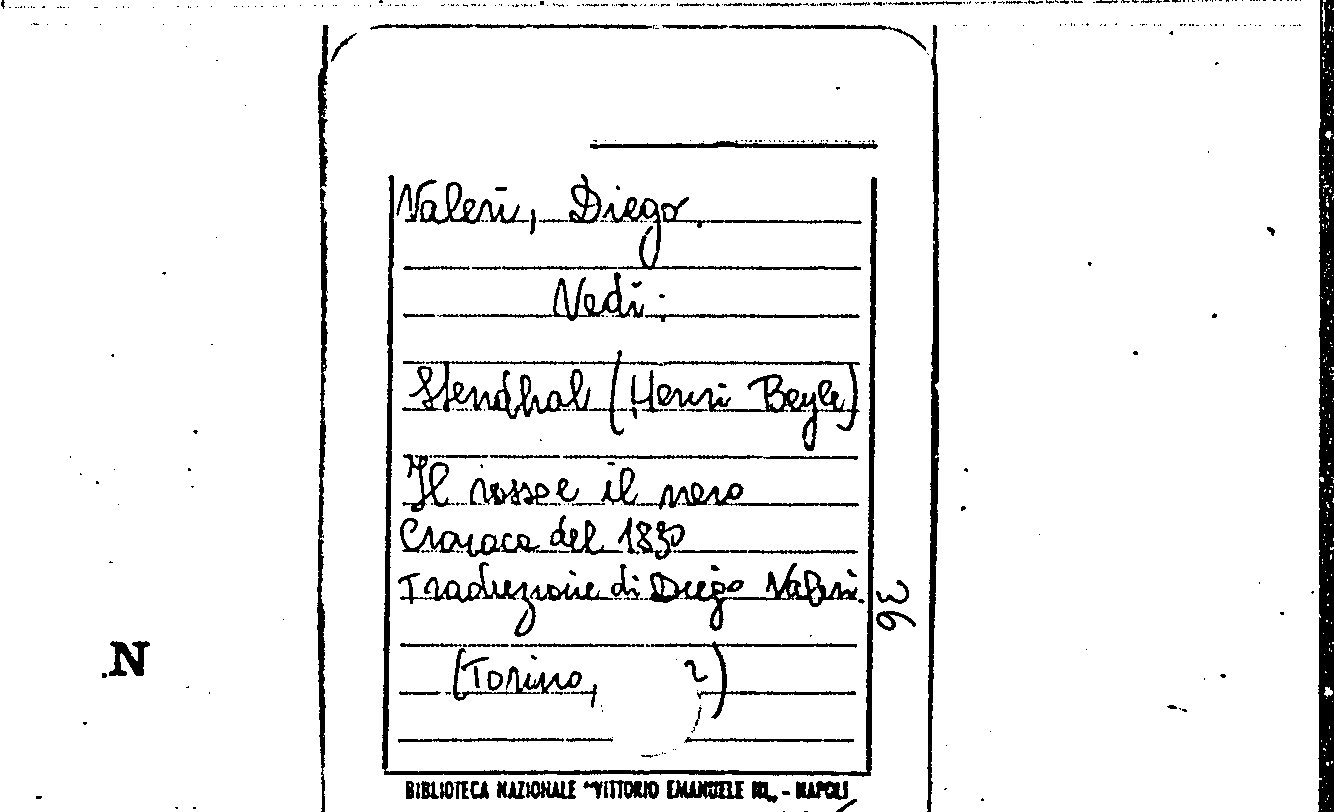 Valeri, Diego.
Vedi:
Stendhal (Henri Beyle)
Il rosso e il nero
Cronaca del 1830
Traduzione di Diego Valeri.
36
(Torino, 2)
N
BIBLIOTECA NAZIONALE "VITTORIO EMANUELE III„ - NAPOLI